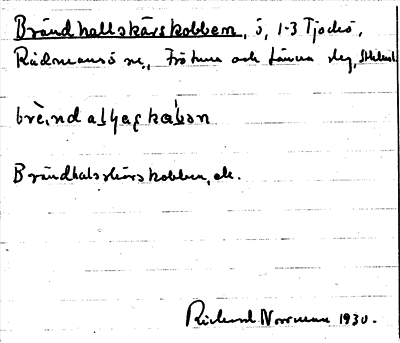 Brändhallskärskobben, ö, 1-3 Tjockö,
Rådmansö sn., Frötuna och Länna skg, Sthlms l.
Brändhalsskärskobben, ek.
Rickard Norrman 1930.